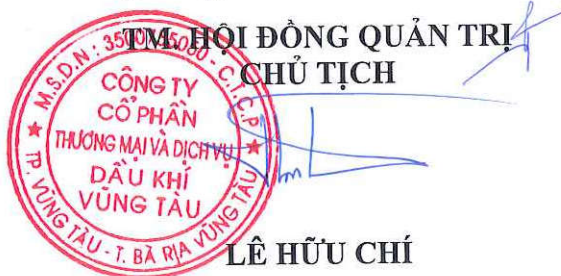 TM. HỘI ĐỒNG QUẢN TRỊ
CHỦ TỊCH
M.S.D.N: 350
- C.T.C.P
CÔNG TY
CỔ PHẦN
THƯƠNG MẠI VÀ DỊCH VỤ
DẦU KHÍ
VŨNG TÀU
TP. VŨNG TÀU - T. BÀ RỊA VŨNG TÀU
LÊ HỮU CHÍ